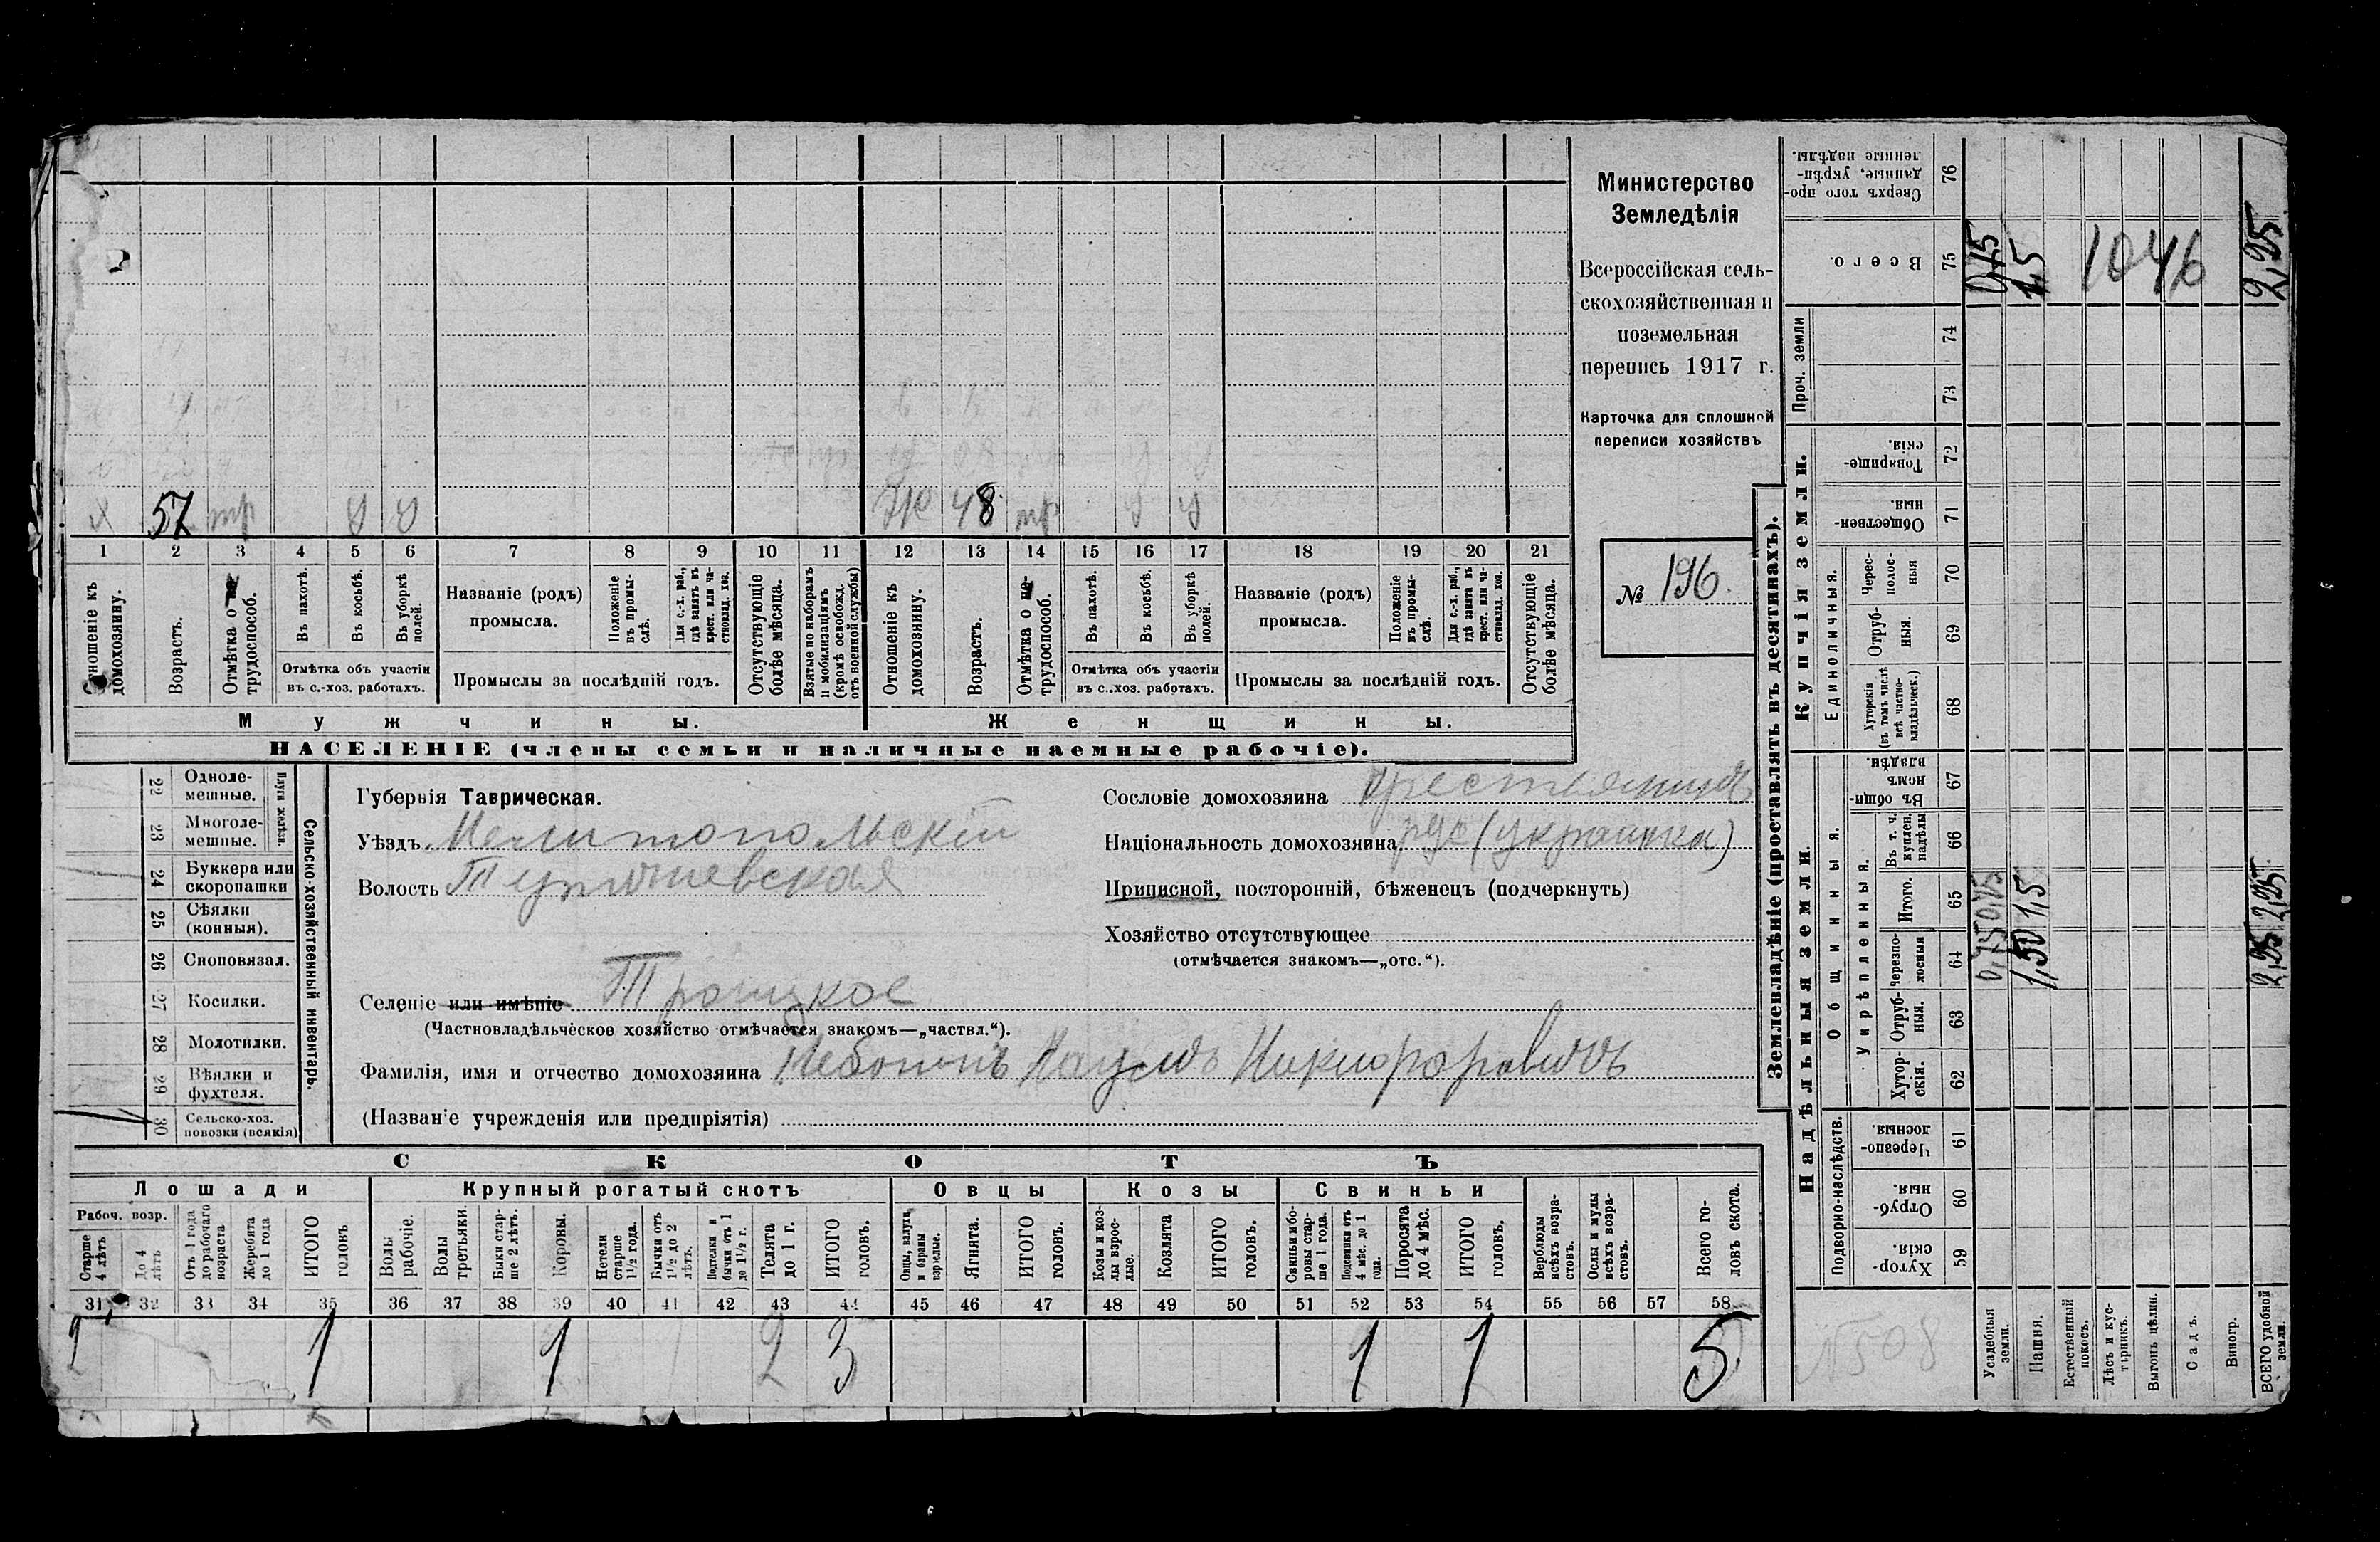 х 57 тр у у Ж 48 тр у у
1 2 3 4 5 6 7 8 9 10 11 12 13 14 15 16 17 18 19 20 21
Отношеніе къ домохозяину.
Возрастъ.
Отмѣтка о не-трудоспособ.
Въ пахотѣ.
Въ косьбѣ.
Въ уборкѣ полей.
Отмѣтка объ участіи
въ с.-хоз. работахъ.
Названіе (родъ)
промысла.
Положеніе въ промы-слѣ.
Для с.-х. раб., гдѣ занятъ въ крест. или ча-стновлад. хоз.
Промыслы за послѣдній годъ.
Отсутствующіе болѣе мѣсяца.
Взятые по наборамъ и мобилизаціямъ (кромѣ освобожд. отъ военной службы)
Отношеніе къ домохозяину.
Возрастъ.
Отмѣтка о не-трудоспособ.
Въ пахотѣ.
Въ косьбѣ.
Въ уборкѣ полей.
Отмѣтка объ участіи
въ с.-хоз. работахъ.
Названіе (родъ)
промысла.
Положеніе въ промы-слѣ.
Для с.-х. раб., гдѣ занята въ крест. или ча-стновлад. хоз.
Промыслы за послѣдній годъ.
Отсутствующіе болѣе мѣсяца.
Мужчины.
Женщины.
НАСЕЛЕНІЕ (члены семьи и наличные наемные рабочіе).
Министерство
Земледѣлія
Всероссійская сель-
скохозяйственная и
поземельная
перепись 1917 г.
Карточка для сплошной
переписи хозяйствъ
№ 196.
22 Одноле-мешные.
23 Многоле-мешные.
Плуги желѣзн.
24 Буккера или скоропашки
25 Сѣялки (конныя).
26 Сноповязал.
27 Косилки.
28 Молотилки.
29 Вѣялки и фухтеля.
30 Сельско-хоз. повозки (всякія)
Сельско-хозяйственный инвентарь.
Губернія Таврическая.
Уѣздъ Мелитопольскій
Волость
Селеніе или имѣніе Троицкое
(Частновладѣльческое хозяйство отмѣчается знакомъ—„частвл.“).
Фамилія, имя и отчество домохозяина Никифоровичъ
(Названіе учрежденія или предпріятія)
Сословіе домохозяина крестьянинъ
Національность домохозяина рус (украинка)
Приписной, посторонній, бѣженецъ (подчеркнуть)
Хозяйство отсутствующее
(отмѣчается знакомъ—„отс.“).
СКОТЪ
Лошади
Крупный рогатый скотъ
Овцы
Козы
Свиньи
Рабоч. возр.
Старше 4 лѣтъ
До 4 лѣтъ
Отъ 1 года до рабочаго возраста
Жеребята до 1 года
ИТОГО головъ
Волы рабочіе.
Волы третьяки.
Быки стар-ше 2 лѣтъ.
Коровы.
Нетели старше 1½ года.
Бычки отъ 1½ до 2 лѣтъ.
Подтелки и бычки отъ 1 до 1½ г.
Телята до 1 г.
ИТОГО головъ.
Овцы, валухи и бараны взрослые.
Ягнята.
ИТОГО головъ.
Козы и коз-лы взрос-лые.
Козлята
ИТОГО головъ.
Свиньи и бо-ровы стар-ше 1 года.
Подсвинки отъ 4 мѣс. до 1 года.
Поросята до 4 мѣс.
ИТОГО головъ.
Верблюды всѣхъ возра-стовъ.
Ослы и мулы всѣхъ возра-стовъ.
Всего го-ловъ скота.
31 32 33 34 35 36 37 38 39 40 41 42 43 44 45 46 47 48 49 50 51 52 53 54 55 56 57 58
1 1 1 2 3 1 1 5
Землевладѣніе (проставлять въ десятинахъ).
Надѣльныя земли.
Купчія земли.
Проч. земли
Подворно-наслѣдств.
Общинныя.
Укрѣпленныя.
Единоличныя.
Хутор-скія. 59
Отруб-ныя. 60
Черезпо-лосныя. 61
Хутор-скія. 62
Отруб-ныя. 63
Черезпо-лосныя 64
Итого. 65
Въ т. ч. куплен. надѣлы 66
Въ общин-номъ владѣн. 67
Хуторскія (въ томъ числѣ всѣ частно-владѣльческ.) 68
Отруб-ныя. 69
Черес-полос-ныя 70
Обществен-ныя 71
Товарище-скія. 72
73
74
Всего. 75
Сверхъ того про-данные, укрѣп-ленные надѣлы. 76
Усадебныя земли. 0,75 0,75 0,75
Пашня. 1,50 1,5 1,5
Естественный покосъ.
Лѣсъ и кус-тарникъ.
Выгонъ цѣлин.
Садъ.
Виногр.
ВСЕГО удобной земли. 2,25 2,25 2,25
1046
№508